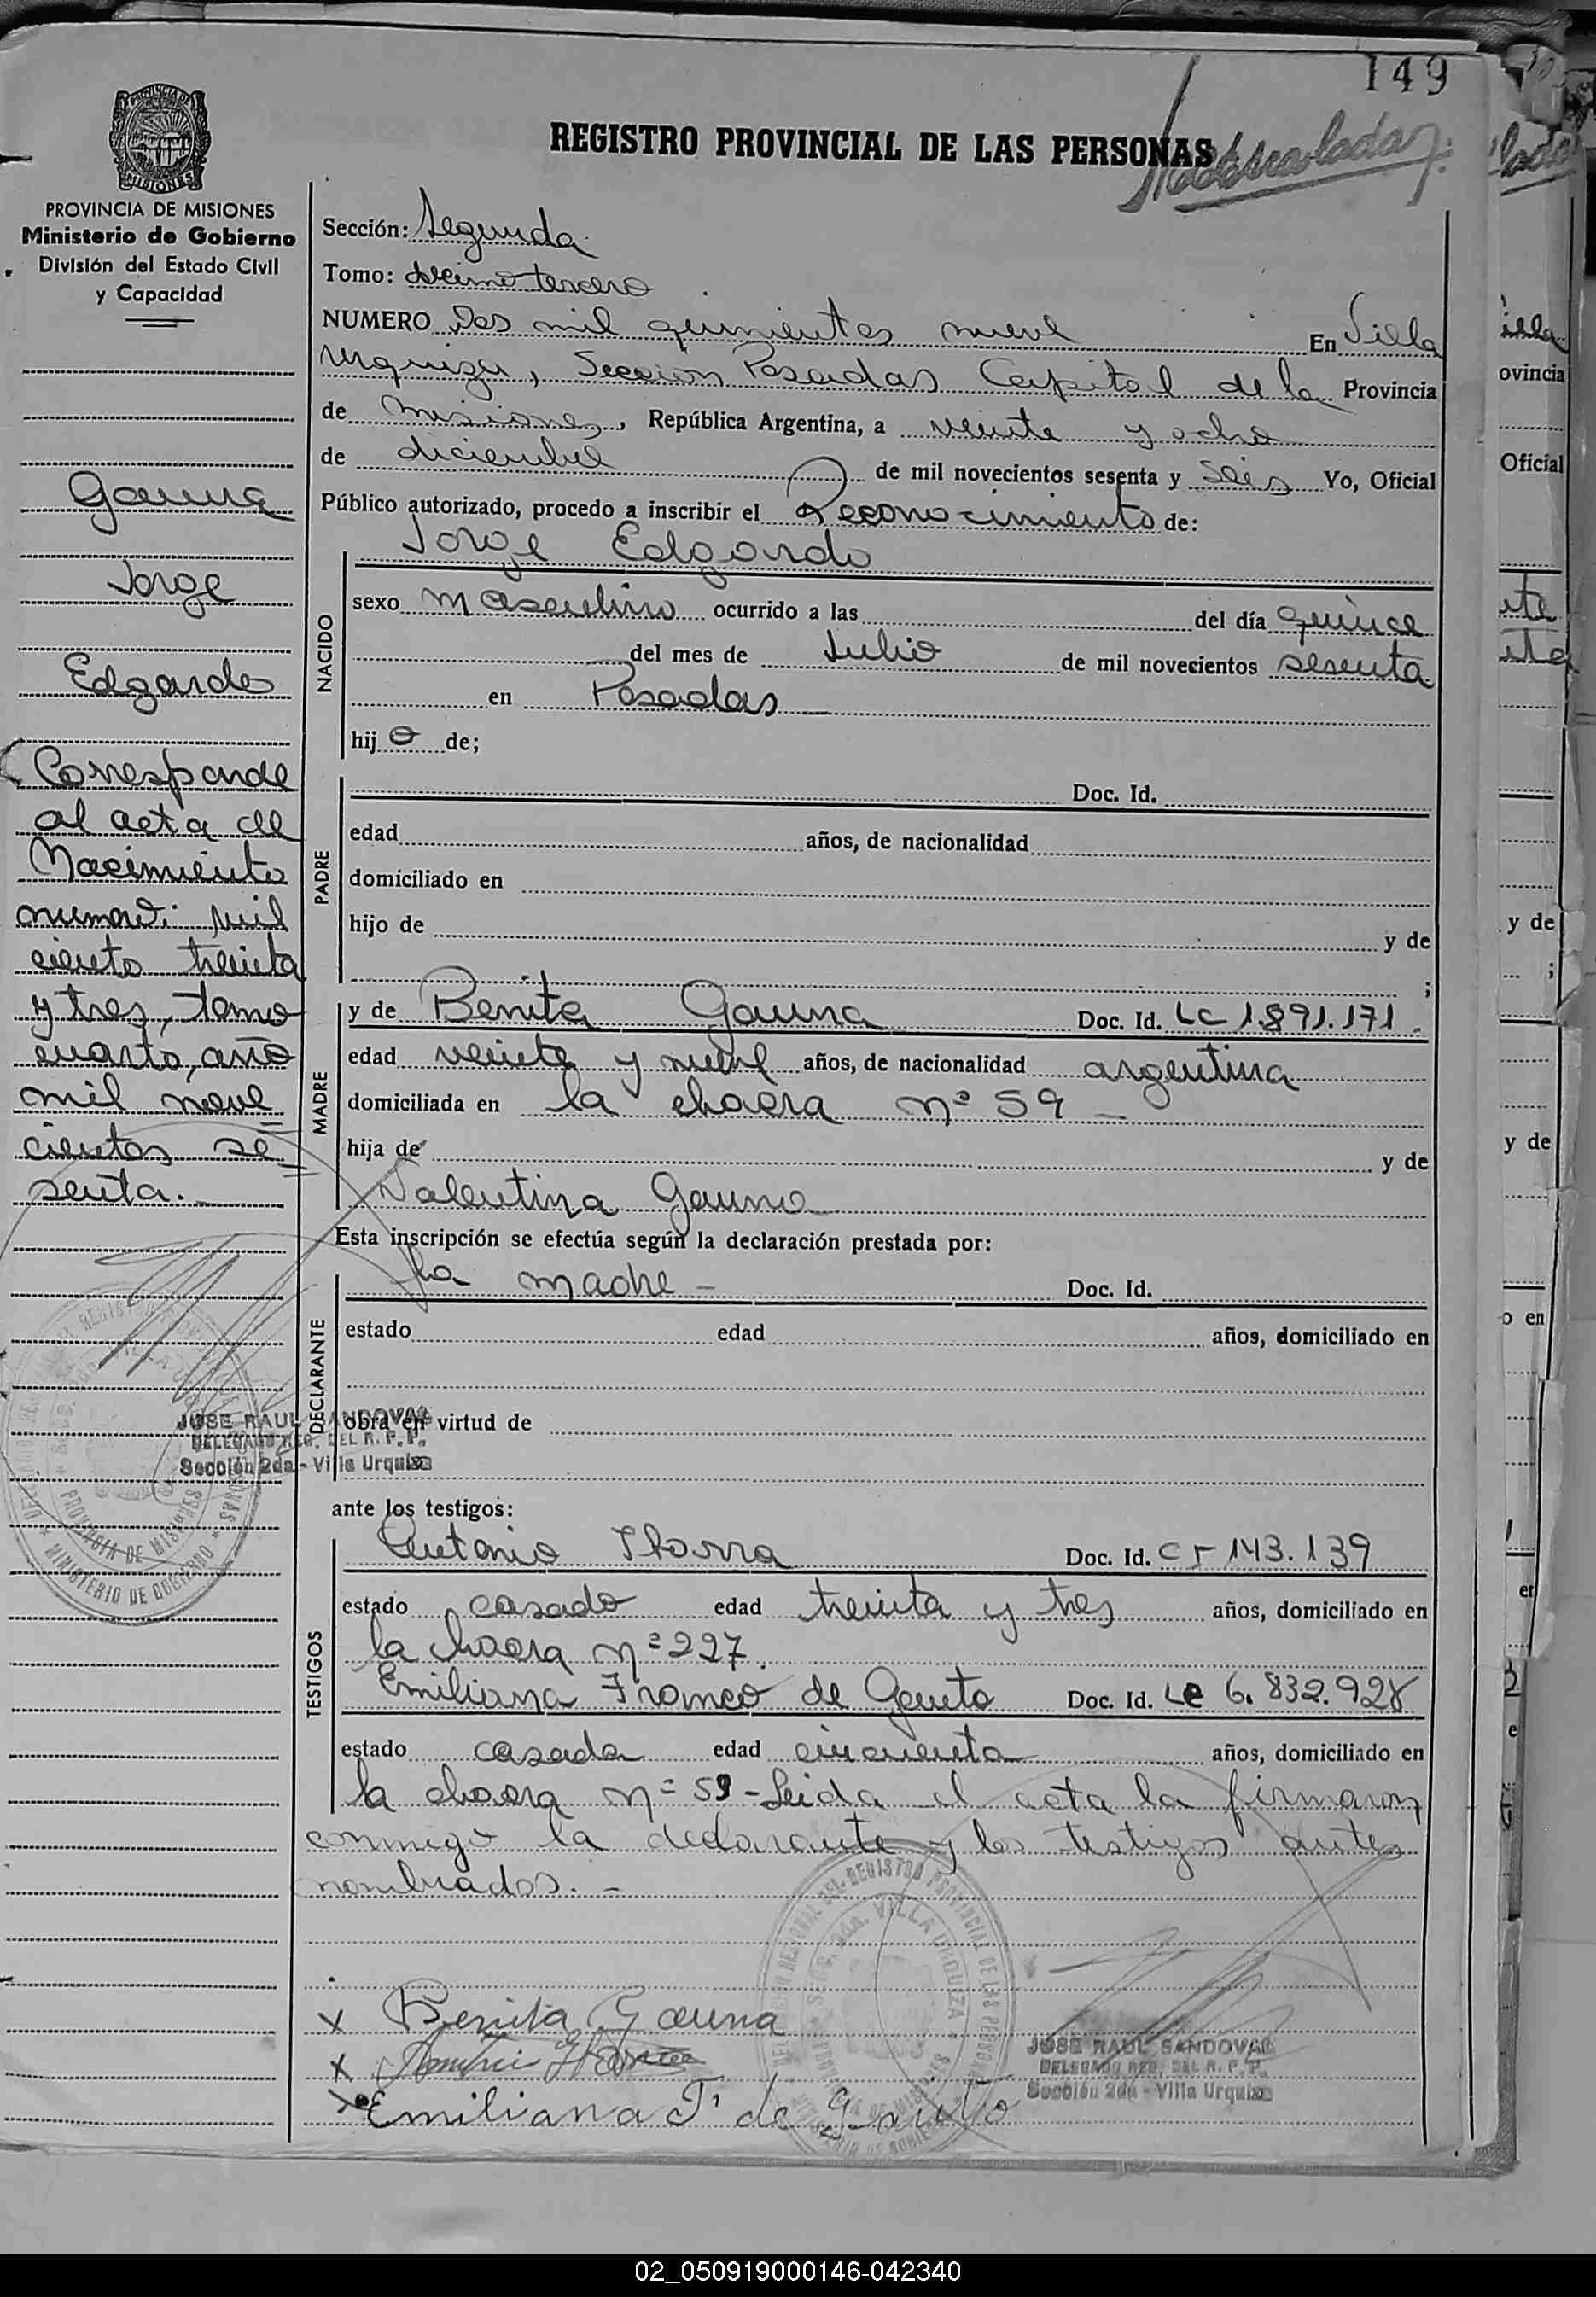 149
REGISTRO PROVINCIAL DE LAS PERSONAS
PROVINCIA DE MISIONES
Ministerio de Gobierno
División del Estado Civil
y Capacidad
Gauna
Jorge
Edgardo
Corresponde
al acta de
Nacimiento
numero: mil
ciento treinta
y tres, tomo
cuarto, año
mil nove
cientos se
senta.
JOSE RAUL SANDOVAL
DELEGADO REG. DEL R. P. P.
Sección 2da - Villa Urquiza
Sección: Segunda
Tomo: Decimo tercero
NUMERO Dos mil quinientos nueve En Villa
Urquiza, Sección Posadas Capital de la Provincia
de Misiones, República Argentina, a veinte y ocho
de diciembre de mil novecientos sesenta y seis Yo, Oficial
Público autorizado, procedo a inscribir el Reconocimiento de:
NACIDO
Jorge Edgardo
sexo masculino ocurrido a las del día quince
del mes de Julio de mil novecientos sesenta
en Posadas
hijo de;
PADRE
Doc. Id.
edad años, de nacionalidad
domiciliado en
hijo de y de
;
MADRE
y de Benita Gauna Doc. Id. LC 1.891.171.
edad veinte y nueve años, de nacionalidad argentina
domiciliada en la chacra nº 59
hija de y de
Valentina Gauna
Esta inscripción se efectúa según la declaración prestada por:
DECLARANTE
la madre - Doc. Id.
estado edad años, domiciliado en
obra en virtud de
ante los testigos:
TESTIGOS
Antonio Ibarra Doc. Id. CI 143.139
estado casado edad treinta y tres años, domiciliado en
la chacra nº 227.
Emiliana Franco de Gauto Doc. Id. LC 6.832.928
estado casada edad cincuenta años, domiciliado en
la chacra nº 59 - Leida el acta la firmaron
conmigo la declarante y los testigos antes
nombrados. -
x Benita Gauna
x
x Emiliana F. de Gauto
JOSE RAUL SANDOVAL
DELEGADO REG. DEL R. P. P.
Sección 2da - Villa Urquiza
02_050919000146-042340